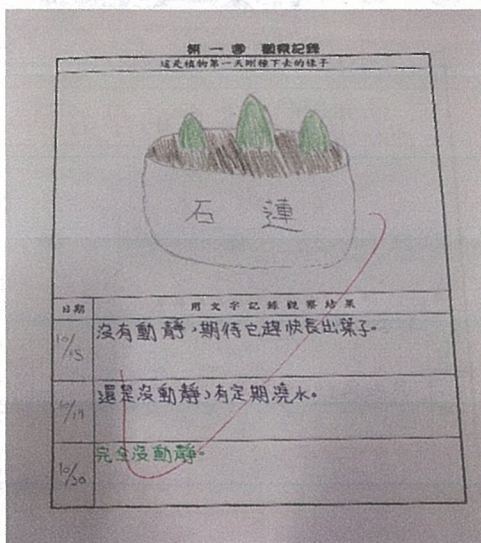 第一季 觀察記錄
這是植物第一天剛種下去的樣子
石蓮
日期 用文字記錄觀察結果
10/15 沒有動靜，期待它趕快長出葉子。
10/19 還是沒動靜，有定期澆水。
10/30 完全沒動靜。